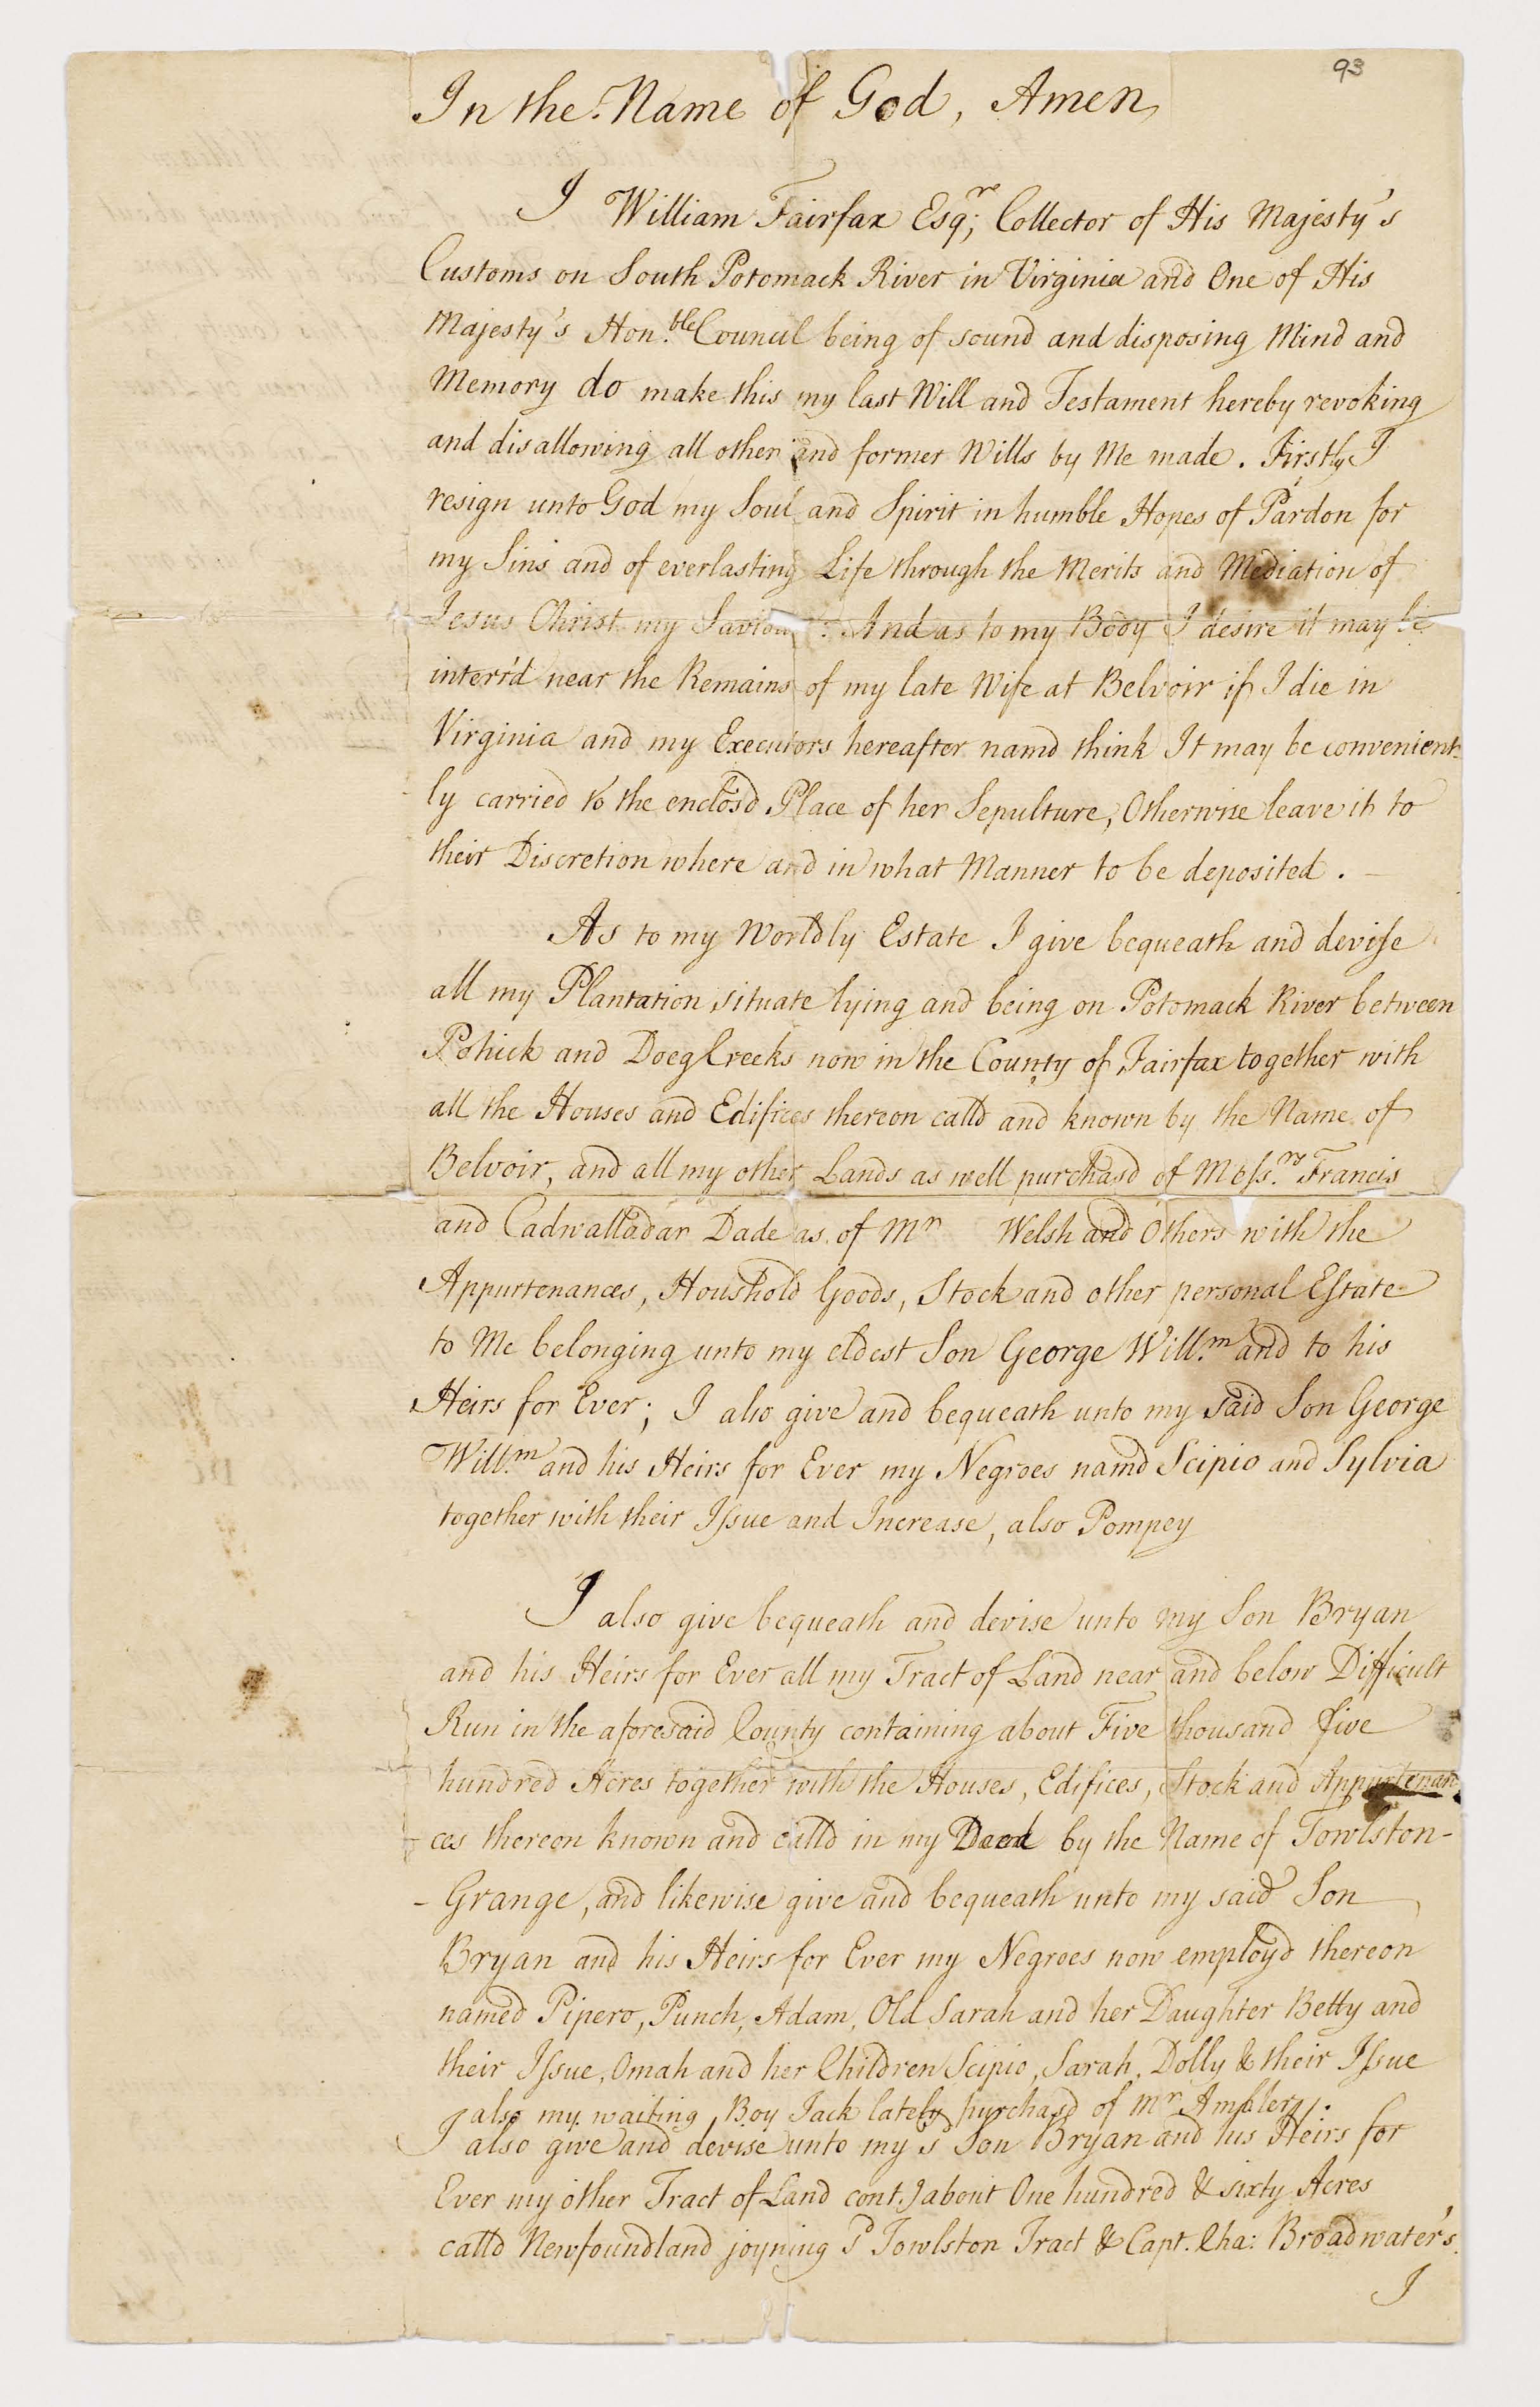 93
In the Name of God, Amen
I William Fairfax Esqr; Collector of His Majesty's
Customs on South Potomack River in Virginia and One of His
Majesty's Hon.ble Council being of sound and disposing Mind and
Memory do make this my last Will and Testament hereby revoking
and disallowing all other and former Wills by Me made. Firstly I
resign unto God my Soul and Spirit in humble Hopes of Pardon for
my Sins and of everlasting Life through the Merits and Mediation of
Jesus Christ my Saviour: And as to my Body I desire it may be
interr'd near the Remains of my late Wife at Belvoir if I die in
Virginia and my Executors hereafter namd think It may be convenient-
ly carried to the enclos'd Place of her Sepulture, Otherwise leave it to
their Discretion where and in what Manner to be deposited.
As to my Worldly Estate I give bequeath and devise
all my Plantation situate lying and being on Potomack River between
Pohick and Doeg Creeks now in the County of Fairfax together with
all the Houses and Edifices thereon calld and known by the Name of
Belvoir, and all my other Lands as well purchasd of Mess.rs Francis
and Cadwalladar Dade as of Mr Welsh and Others with the
Appurtenances, Houshold Goods, Stock and other personal Estate
to Me belonging unto my eldest Son George Will.m and to his
Heirs for Ever; I also give and bequeath unto my said Son George
Will.m and his Heirs for Ever my Negroes namd Scipio and Sylvia
together with their Issue and Increase, also Pompey
I also give bequeath and devise unto my Son Bryan
and his Heirs for Ever all my Tract of Land near and below Difficult
Run in the aforesaid County containing about Five thousand five
hundred Acres together with the Houses, Edifices, Stock and Appurtenan
ces thereon known and calld in my Deed by the Name of Towlston-
- Grange, and likewise give and bequeath unto my said Son
Bryan and his Heirs for Ever my Negroes now employd thereon
named Pipero, Punch, Adam, Old Sarah and her Daughter Betty and
their Issue, Omah and her Children Scipio, Sarah, Dolly & their Issue
also my waiting Boy Jack lately purchasd of Mr Ambler.
I also give and devise unto my sd Son Bryan and his Heirs for
Ever my other Tract of Land cont.g about One hundred & sixty Acres
calld Newfoundland joyning sd Towlston Tract & Capt. Cha: Broadwater's.
I